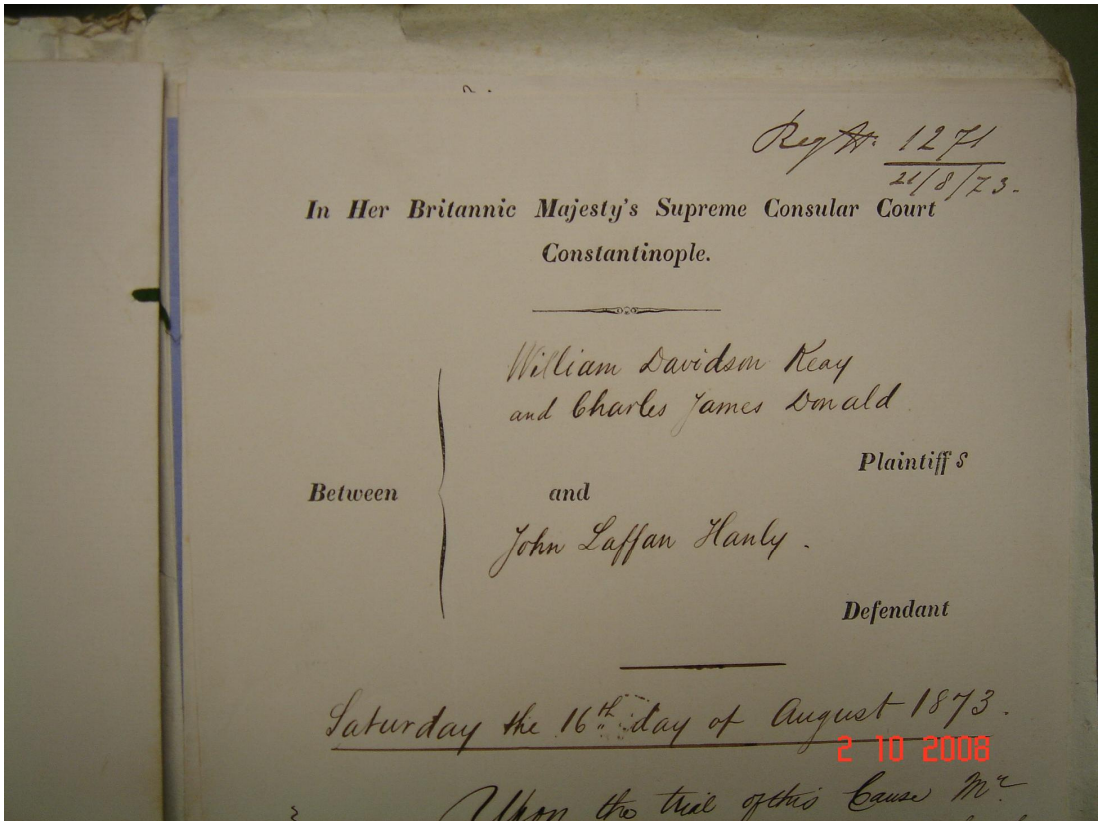 Reg. Nr. 1271
21/8/73.
In Her Britannic Majesty's Supreme Consular Court
Constantinople.
William Davidson Keay
and Charles James Donald
Plaintiffs
Between
and
John Laffan Hanly.
Defendant
Saturday the 16th day of August 1873.
2 10 2008
Upon the trial of this Cause Mr